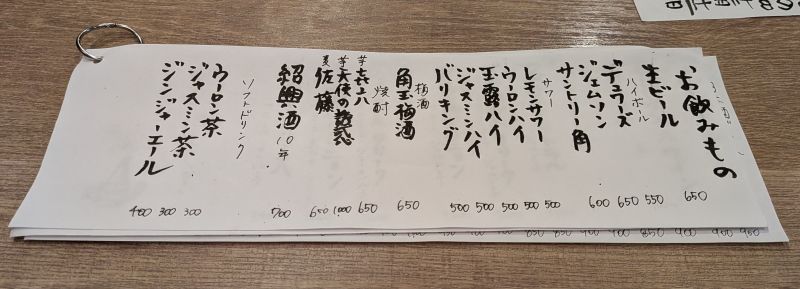 お飲みもの
生ビール 650
ハイボール
デュワーズ 550
ジェムソン 650
サントリー角 600
サワー
レモンサワー 500
ウーロンハイ 500
玉露ハイ 500
ジャスミンハイ 500
バリキング 500
梅酒
角玉梅酒 650
焼酎
芋 㐂六 650
芋 天使の誘惑 1,000
麦 佐藤 650
紹興酒 10年 700
ソフトドリンク
ウーロン茶 300
ジャスミン茶 300
ジンジャーエール 400